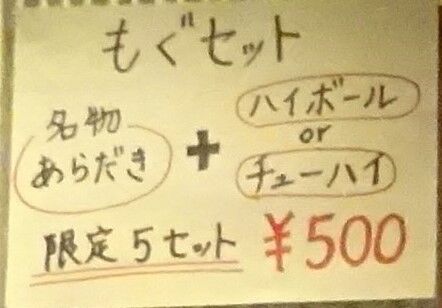 もぐセット
名物
あらだき
+
ハイボール
or
チューハイ
限定5セット ¥500